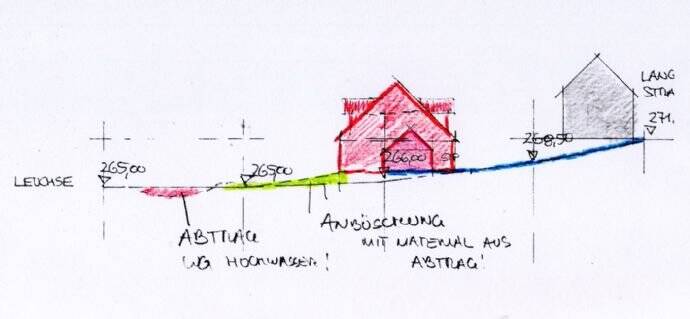 LANG
STRA
271,
268,50
265,00
265,00
266,00
LEUCHSE
ABTRAG
WG HOCHWASSER!
ANBÖSCHUNG
MIT MATERIAL AUS
ABTRAG!